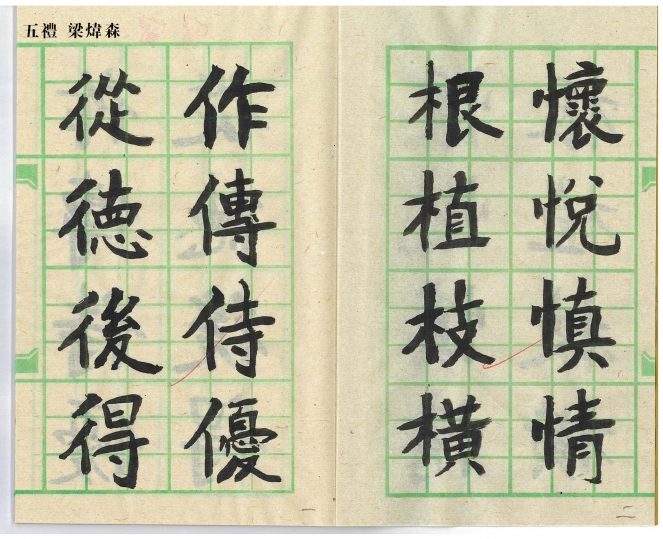 五禮 梁煒森
懷悅慎情
根植枝橫
二
作傳侍優
從德後得
一